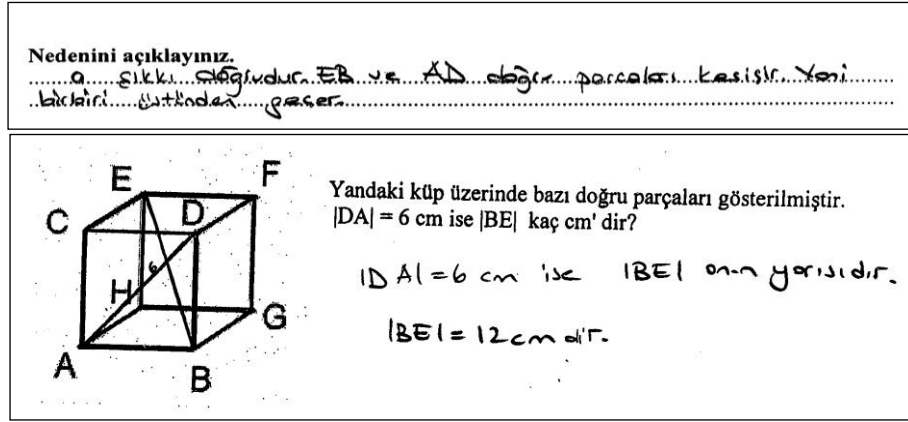 Nedenini açıklayınız.
a şıkkı doğrudur. EB ve AD doğru parçaları kesişir. Yani
birbiri üstünden geçer.
E
F
C
D
6
Yandaki küp üzerinde bazı doğru parçaları gösterilmiştir.
|DA| = 6 cm ise |BE| kaç cm' dir?
|DA|=6 cm ise |BE| onun yarısıdır.
H
G
|BE|= 12 cm dir.
A
B